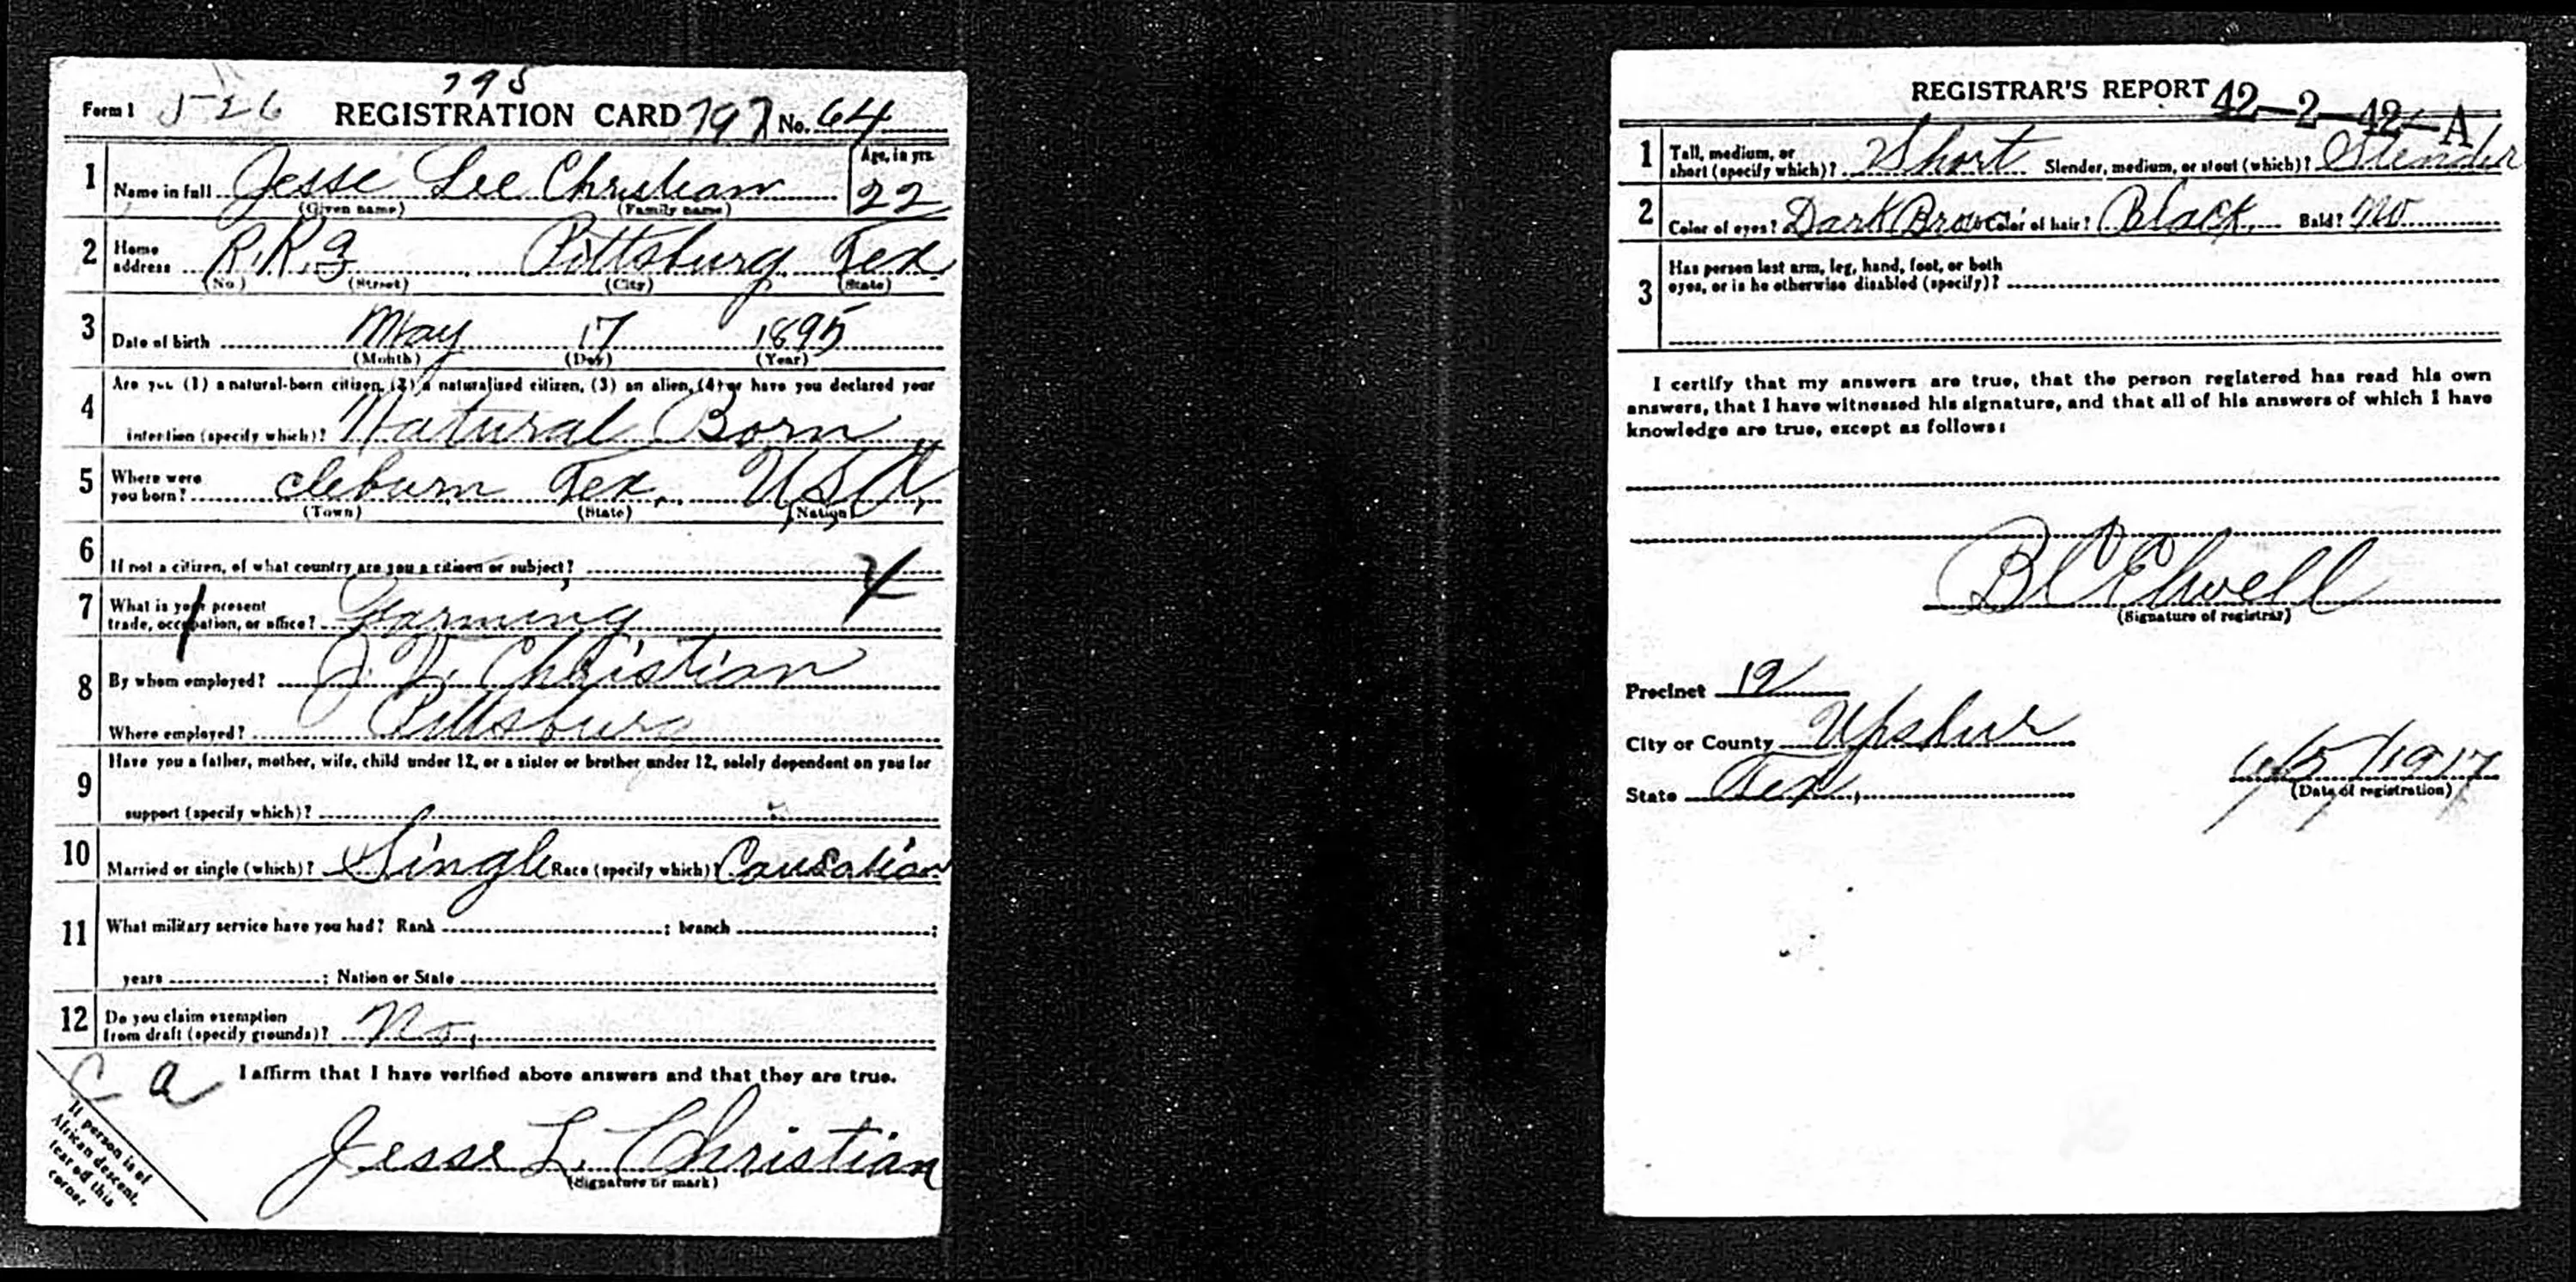 798
Form 1 526 REGISTRATION CARD 797 No. 64
1 Name in full Jesse Lee Christian Age, in yrs. 22
(Given name) (Family name)
2 Home address R.R.3 Pittsburg Tex.
(No.) (Street) (City) (State)
3 Date of birth May 17 1895
(Month) (Day) (Year)
4 Are you (1) a natural-born citizen, (2) a naturalized citizen, (3) an alien, (4) or have you declared your
intention (specify which)? Natural Born
5 Where were you born? Cleburn Tex. U.S.A.
(Town) (State) (Nation)
6 If not a citizen, of what country are you a citizen or subject?
7 What is your present trade, occupation, or office? Farming
8 By whom employed? Christian
Where employed? Pittsburg
9 Have you a father, mother, wife, child under 12, or a sister or brother under 12, solely dependent on you for
support (specify which)?
10 Married or single (which)? Single Race (specify which)? Causation
11 What military service have you had? Rank ; branch ;
years ; Nation or State
12 Do you claim exemption from draft (specify grounds)? No.
C a I affirm that I have verified above answers and that they are true.
Jesse L. Christian
(Signature or mark)
If person is of
African descent,
tear off this
corner
REGISTRAR'S REPORT 42-2-42-A
1 Tall, medium, or short (specify which)? Short Slender, medium, or stout (which)? Slender
2 Color of eyes? Dark Brown Color of hair? Black Bald? No
3 Has person lost arm, leg, hand, foot, or both
eyes, or is he otherwise disabled (specify)?
I certify that my answers are true, that the person registered has read his own
answers, that I have witnessed his signature, and that all of his answers of which I have
knowledge are true, except as follows:
B C Elwell
(Signature of registrar)
Precinct 12
City or County Upshur
State Tex. 6/5/1917
(Date of registration)